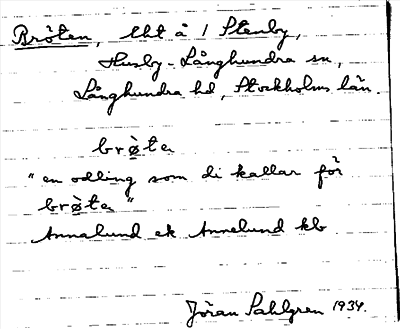 Bröten, lht å 1 Stenby,
Husby-Långhundra sn,
Långhundra hd, Stockholms län.
brö̀ta
"en odling som di kallar för
brö̀ta"
Annalund ek Annelund kb
Jöran Sahlgren 1934.